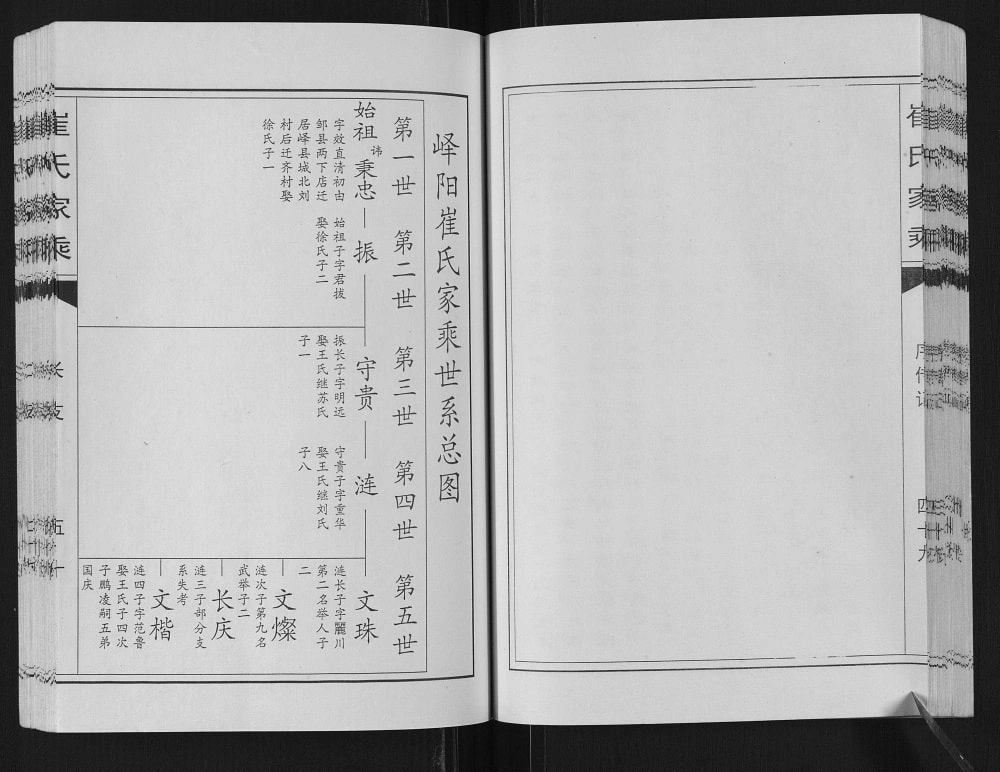 崔氏家乘
四十九
峄阳崔氏家乘世系总图
第一世 第二世 第三世 第四世 第五世
始祖讳秉忠
字效直清初由
邹县两下店迁
居峄县城北刘
村后迁齐村娶
徐氏子一
振
始祖子字君拔
娶徐氏子二
守贵
振长子字明远
娶王氏继苏氏
子一
涟
守贵子字重华
娶王氏继刘氏
子八
文珠
涟长子字麗川
第二名举人子
二
文燦
涟次子第九名
武举子二
长庆
涟三子部分支
系失考
文楷
涟四子字范鲁
娶王氏子四次
子鹏凌嗣五弟
国庆
崔氏家乘
长支
五十